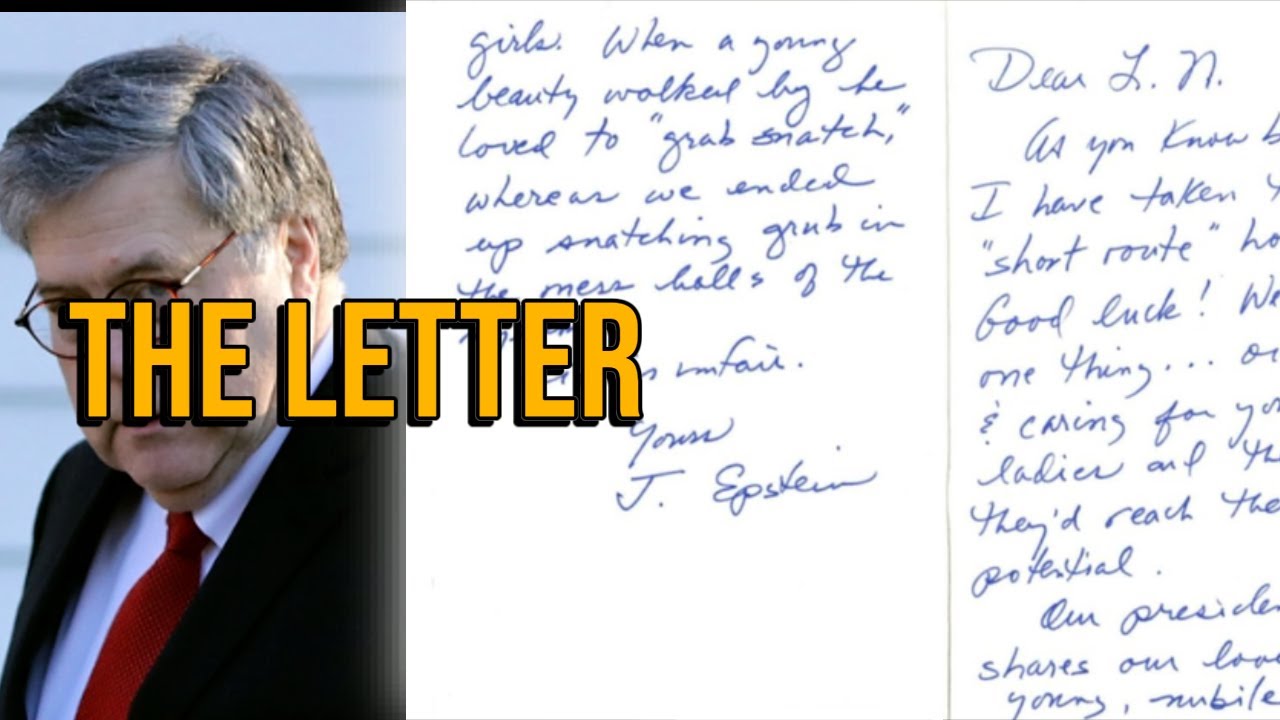 THE LETTER
girls. When a young
beauty walked by he
loved to "grab snatch,"
whereas we ended
up snatching grub in
the mess halls of the
unfair.
Yours
J. Epstein
Dear L. N.
As you know b
I have taken t
"short route" ho
Good luck! We
one thing... ou
& caring for yo
ladies and the
they'd reach the
potential.
Our presiden
shares our lov
young, nubile